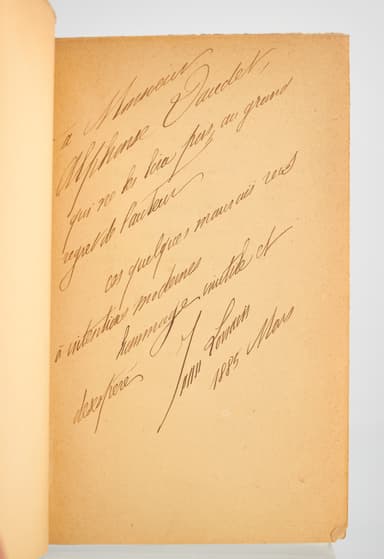 à Monsieur
Alphonse Daudet,
qui ne les lira pas, au grand
regret de l'auteur
ces quelques mauvais vers
à intentions modernes
hommage inutile et
désespéré
Jean Lorrain
1885 Mars